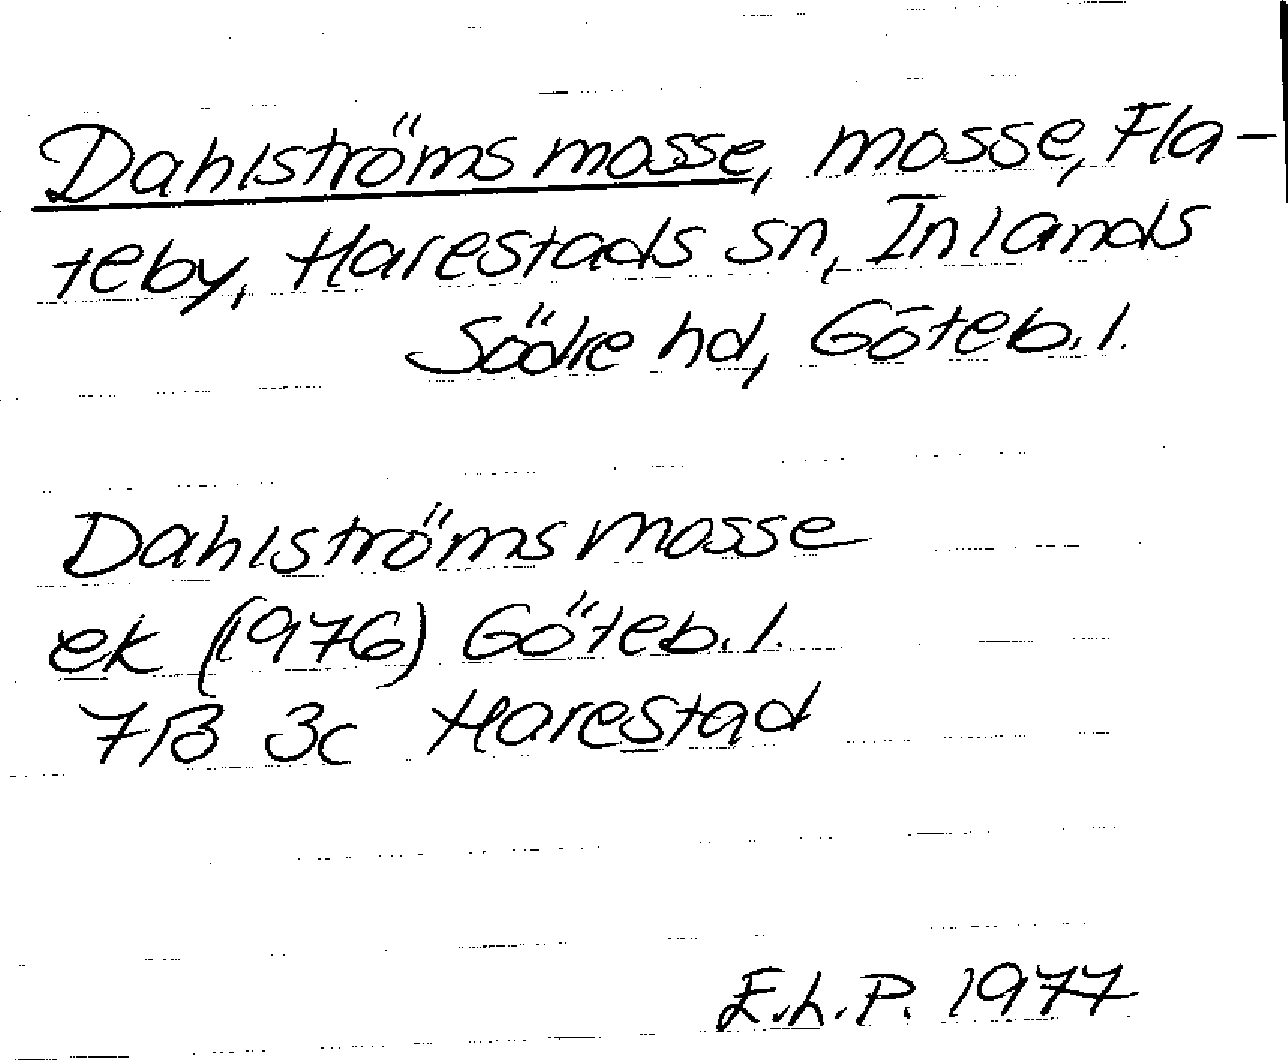 Dahlströms mosse, mosse, Fla-
teby, Harestads sn, Inlands
Södre hd, Göteb. l.
Dahlströms mosse
ek (1976) Göteb. l.
7B 3c Harestad
E.L.P. 1977